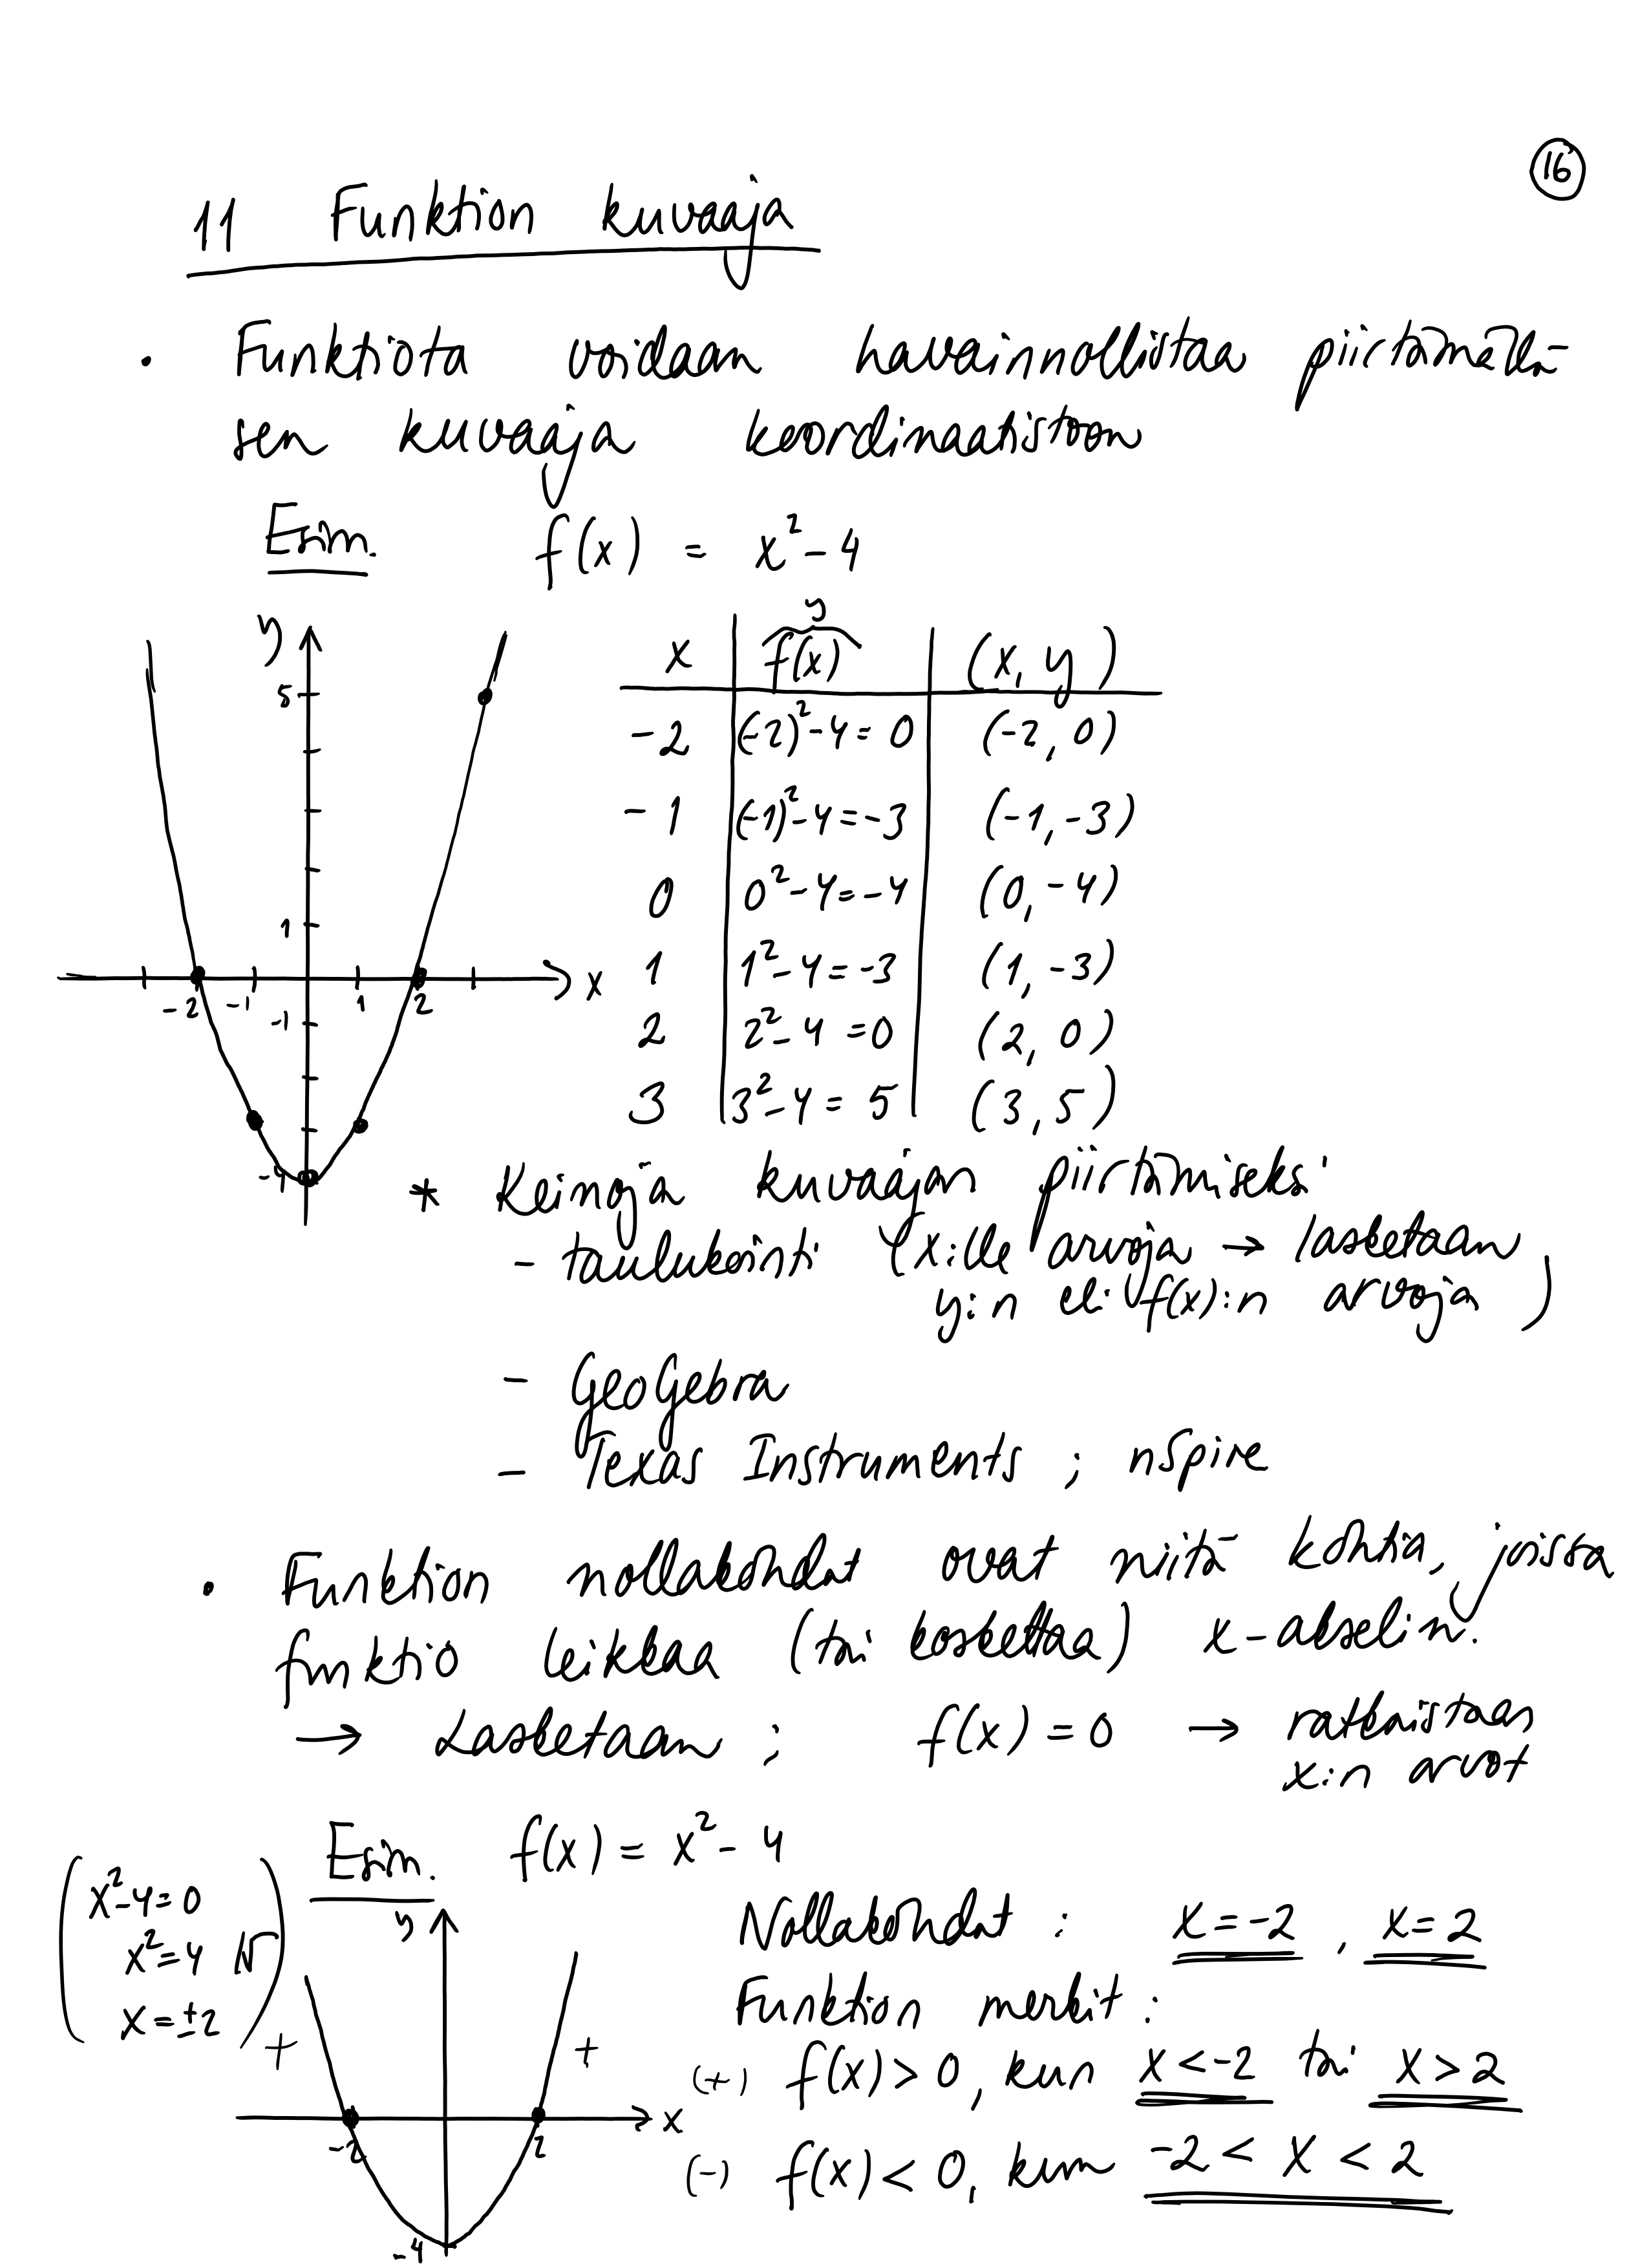 16
11 Funktion kuvaaja
• Funktiota voidaan havainnollistaa piirtämällä
sen kuvaaja koordinaatistoon
Esim. f(x) = x² - 4
y
5
1
-2 -1 1 2 x
-1
-4
x | f(x) y | (x, y)
-2 | (-2)² - 4 = 0 | (-2, 0)
-1 | (-1)² - 4 = -3 | (-1, -3)
0 | 0² - 4 = -4 | (0, -4)
1 | 1² - 4 = -3 | (1, -3)
2 | 2² - 4 = 0 | (2, 0)
3 | 3² - 4 = 5 | (3, 5)
* Keinoja kuvaajan piirtämiseksi
- taulukointi (x:lle arvoja → lasketaan
y:n eli f(x):n arvoja)
- GeoGebra
- Texas Instruments ; nSpire
• Funktion nollakohdat ovat niitä kohtia, joissa
funktio leikkaa (tai koskettaa) x-akselin.
→ Lasketaan ; f(x) = 0 → ratkaistaan
x:n arvot
Esim. f(x) = x² - 4
x² - 4 = 0
x² = 4 |√
x = ±2
y
+ +
-2 2 x
-4
Nollakohdat : x = -2 , x = 2
Funktion merkit :
(+) f(x) > 0, kun x < -2 tai x > 2
(-) f(x) < 0, kun -2 < x < 2